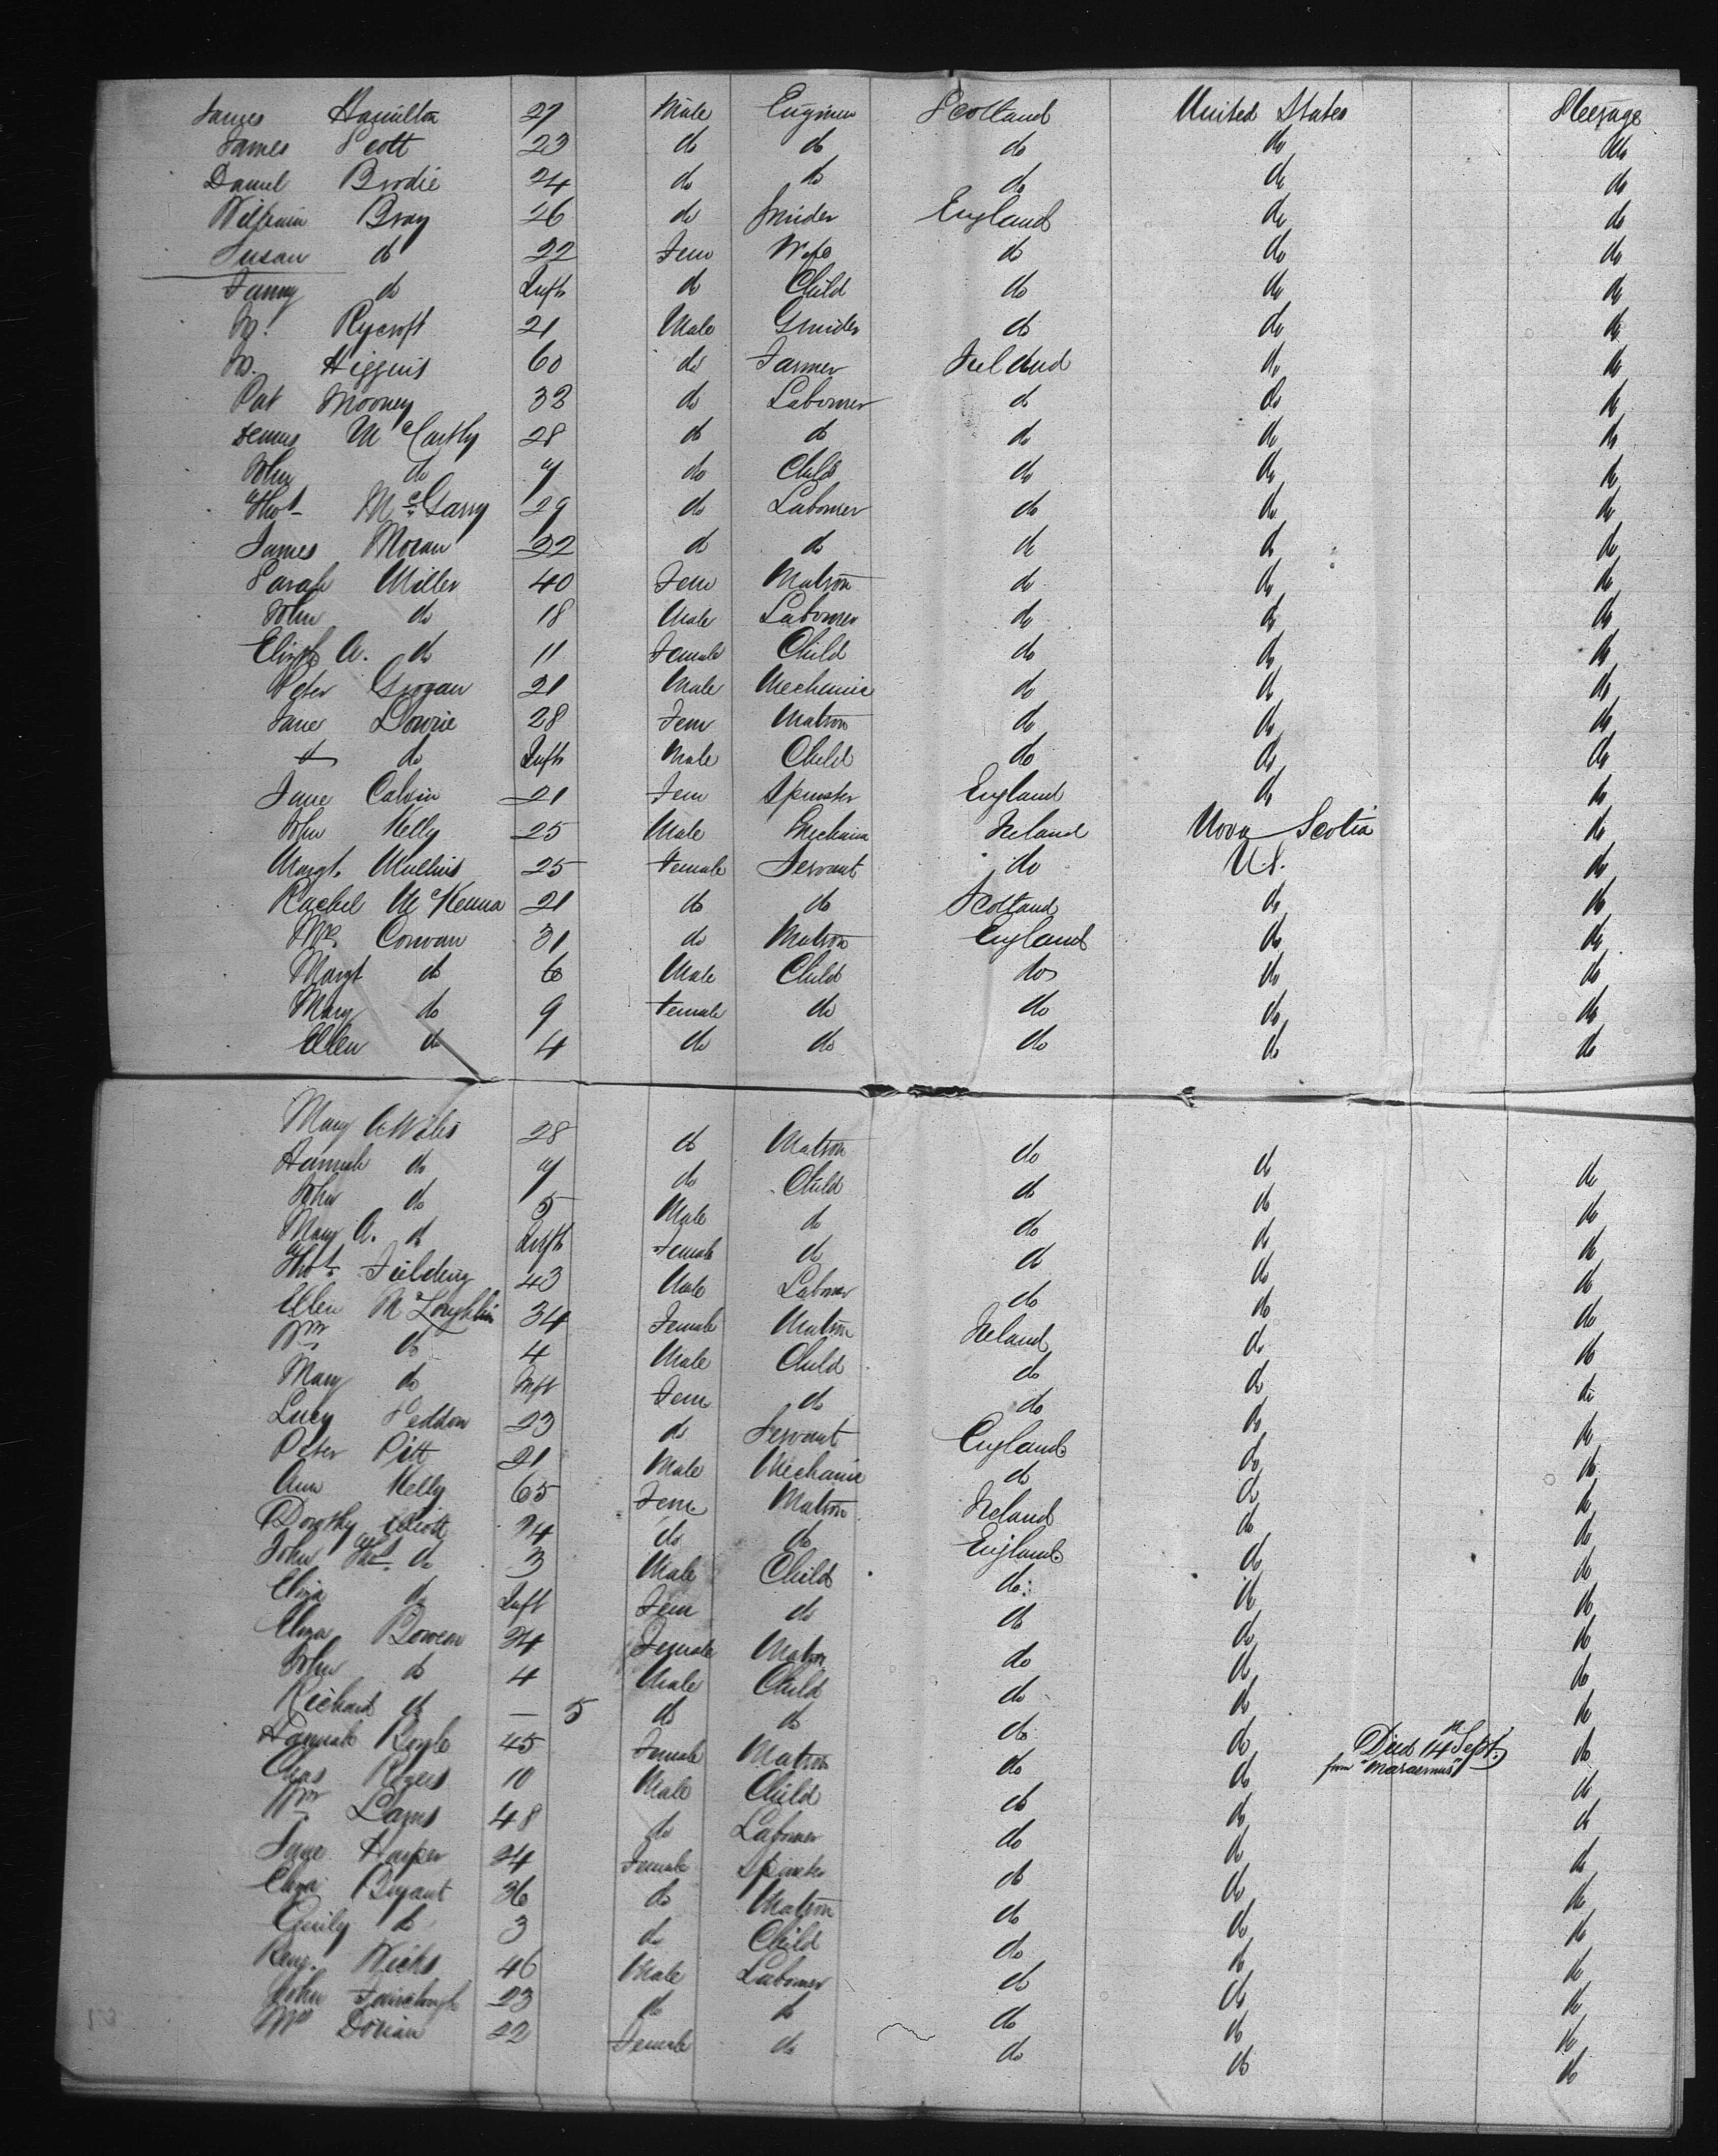 James Hamilton 27 Male Engineer Scotland United States Steerage
James Scott 23 do do do do do
Daniel Brodie 24 do do do do do
William Bray 26 do Grinder England do do
Susan do 22 Fem Wife do do do
Fanny do Inft do Child do do do
W. Rycroft 21 Male Grinder do do do
W. Higgins 60 do Farmer Ireland do do
Pat Mooney 33 do Labourer do do do
McCarthy 28 do do do do do
John do 7 do Child do do do
Thos McGarry 29 do Labourer do do do
James Moran 22 do do do do do
Sarah Miller 40 Fem Matron do do do
John do 18 Male Labourer do do do
Elizth A. do 11 Female Child do do do
Peter Grogan 21 Male Mechanic do do do
Jane Dowrie 28 Fem Matron do do do
do do Inft Male Child do do do
Jane Calvin 21 Fem Spinster England do do
John Kelly 25 Male Mechanic Ireland Nova Scotia do
Margt. Mullins 25 Female Servant do U.S. do
Rachel McKenna 21 do do Scotland do do
Mrs Conwan 31 do Matron England do do
Margt do 6 Male Child do do do
Mary do 9 Female do do do do
Ellen do 4 do do do do do
Mary 28 do Matron do do do
Hannah do 7 do Child do do do
John do 5 Male do do do do
Mary A. do Inft Female do do do do
Thos Fielding 43 Male Labourer do do do
Ellen McLoughlin 34 Female Matron Ireland do do
Wm do 4 Male Child do do do
Mary do Inft Fem do do do do
Lucy Seddon 23 do Servant England do do
Peter Pitt 21 Male Mechanic do do do
Ann Kelly 65 Fem Matron Ireland do do
Dorothy Eliott 24 do do England do do
John Thos do 3 Male Child do do do
Eliza do Inft Fem do do do do
Eliza Bowen 24 Female Matron do do do
John do 4 Male Child do do do
Richard do — 5 do do do do do
Hannah Boyle 45 Female Matron do do Died 14th Sept. from "Marasmus" do
Chas Rogers 10 Male Child do do do
Wm Lams 48 do Labourer do do do
Jane Harper 24 Female Spinster do do do
Eliza Bryant 36 do Matron do do do
Emily do 3 do Child do do do
Benj. Wicks 46 Male Labourer do do do
John Fairclough 23 do do do do do
Mrs Dorian 22 Female do do do do